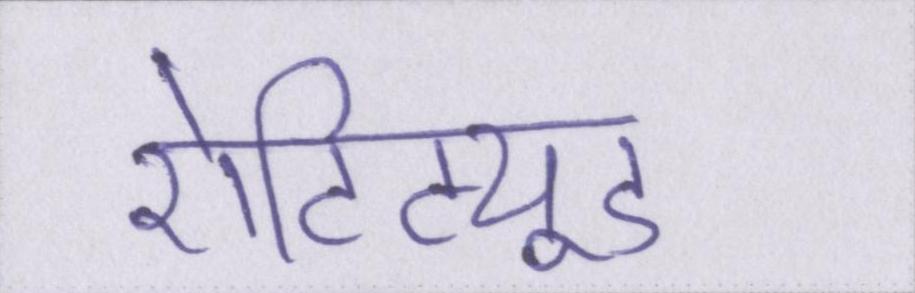 ऐटिट्यूड